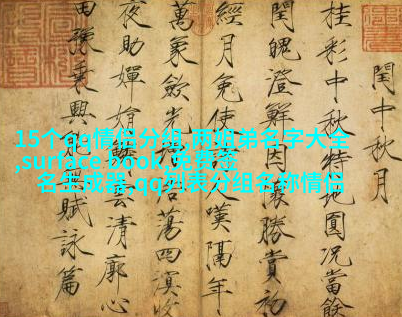 15个qq情侣分组,两姐弟名字大全
,surface book,免费签
名生成器,qq列表分组名称情侣
閏中秋月
桂彩中秋特地圓況當餘
閏魄澄鮮因懷勝賞初
經月免使人嘆隔年
萬象斂光蕩四溟收
夜助嬋娟雲清廓心
田豫乘興賦詠篇